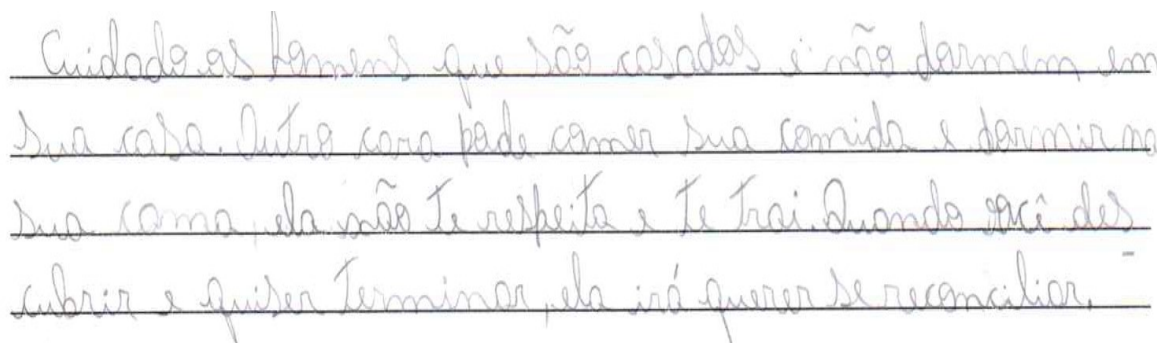 Cuidado os homens que são casados e não dormem em
sua casa. Outro cara pode comer sua comida e dormir na
sua cama, ela não te respeita e te trai. Quando você des
cubrir e quiser terminar, ela irá querer se reconciliar.